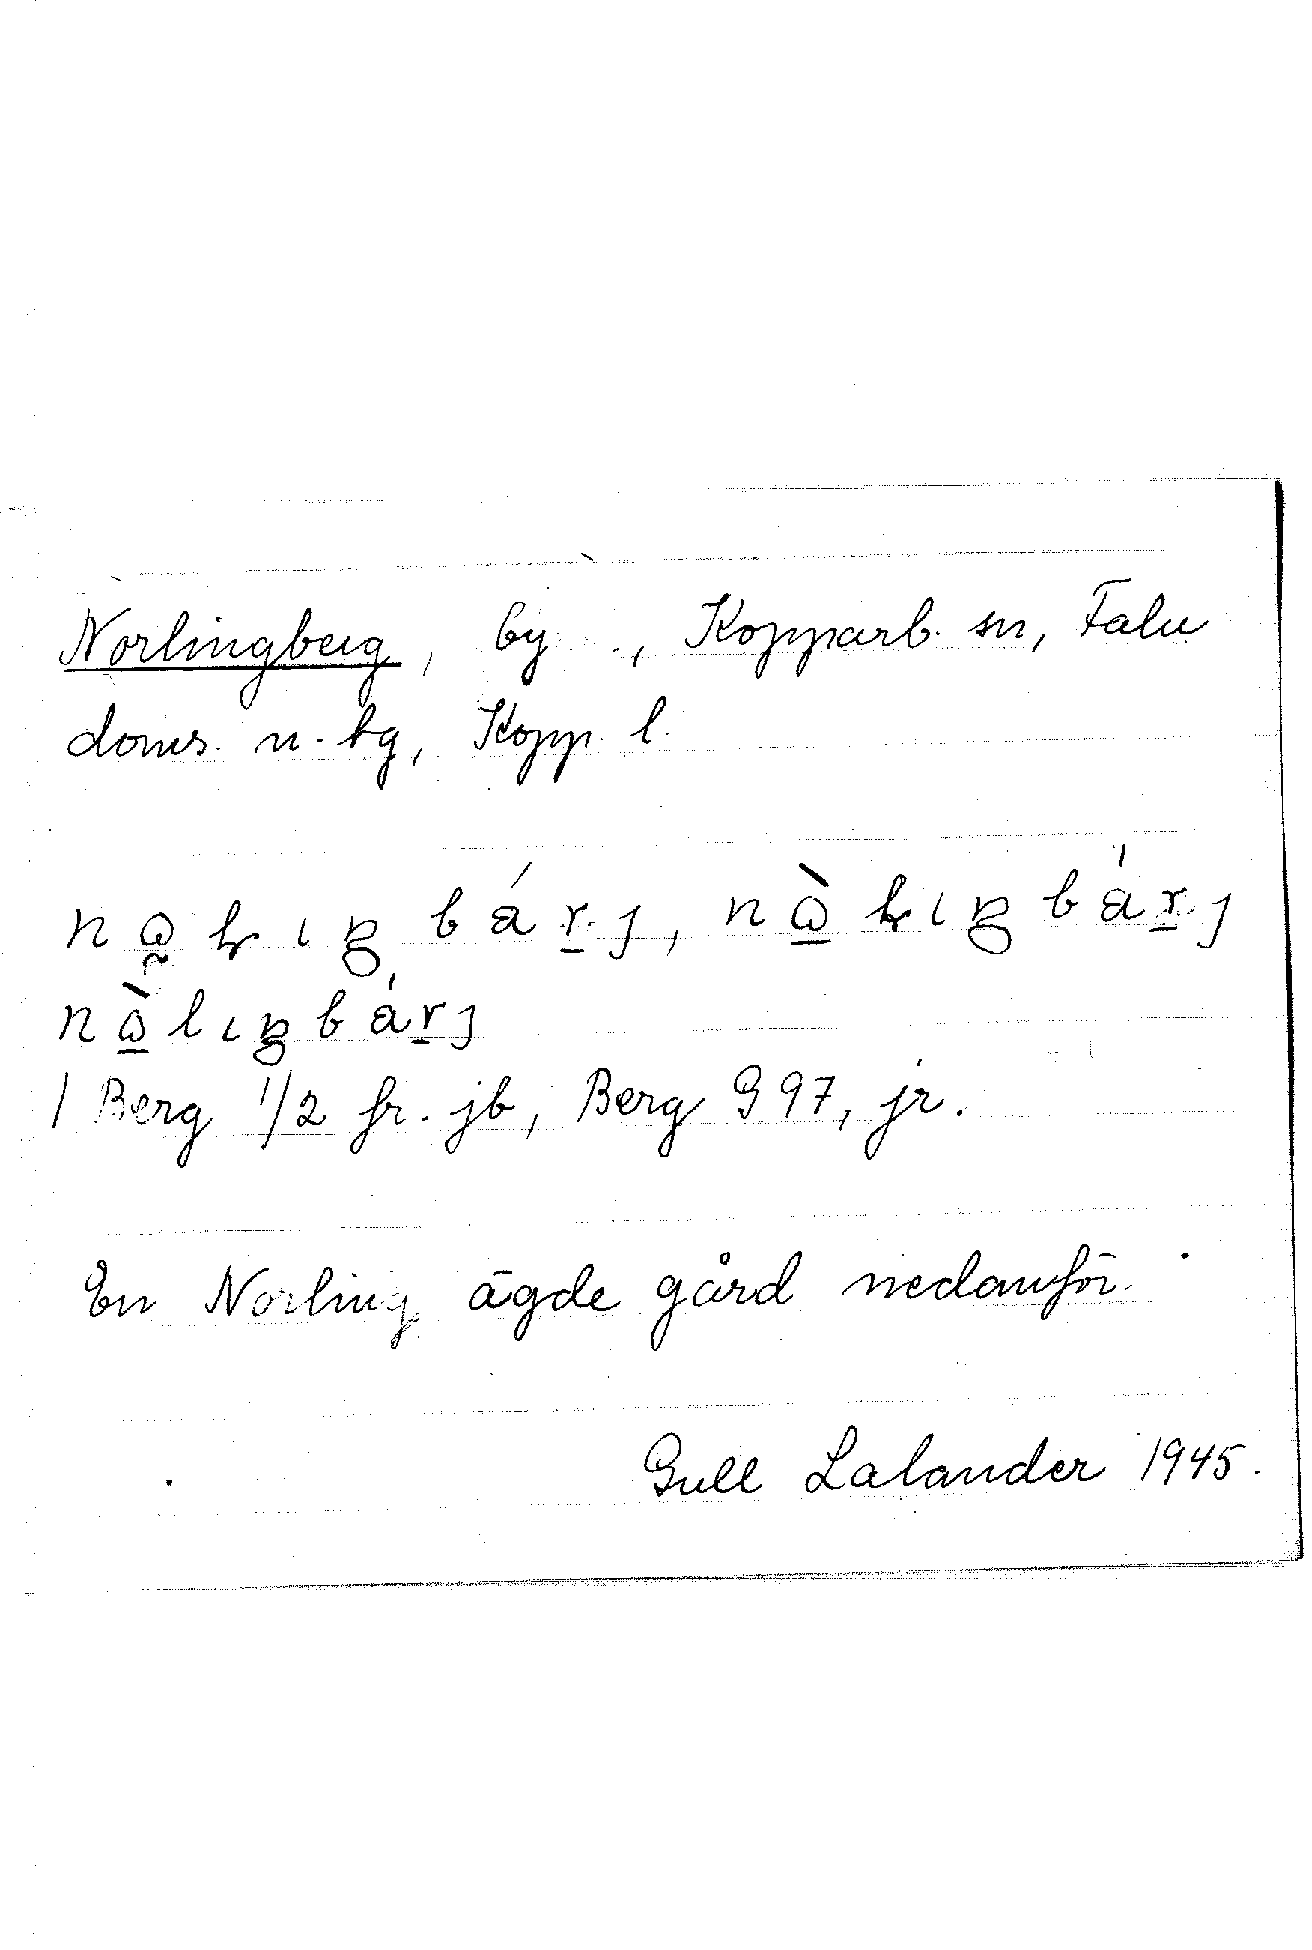 Norlingberg, by ., Kopparb. sn, Falu
doms. n. tg, Kopp. l.
bárj,
nòlıŋbárj
1 Berg 1/2 fr. jb, Berg G 97, jr.
En Norling ägde gård nedanför.
Gull Lalander 1945.